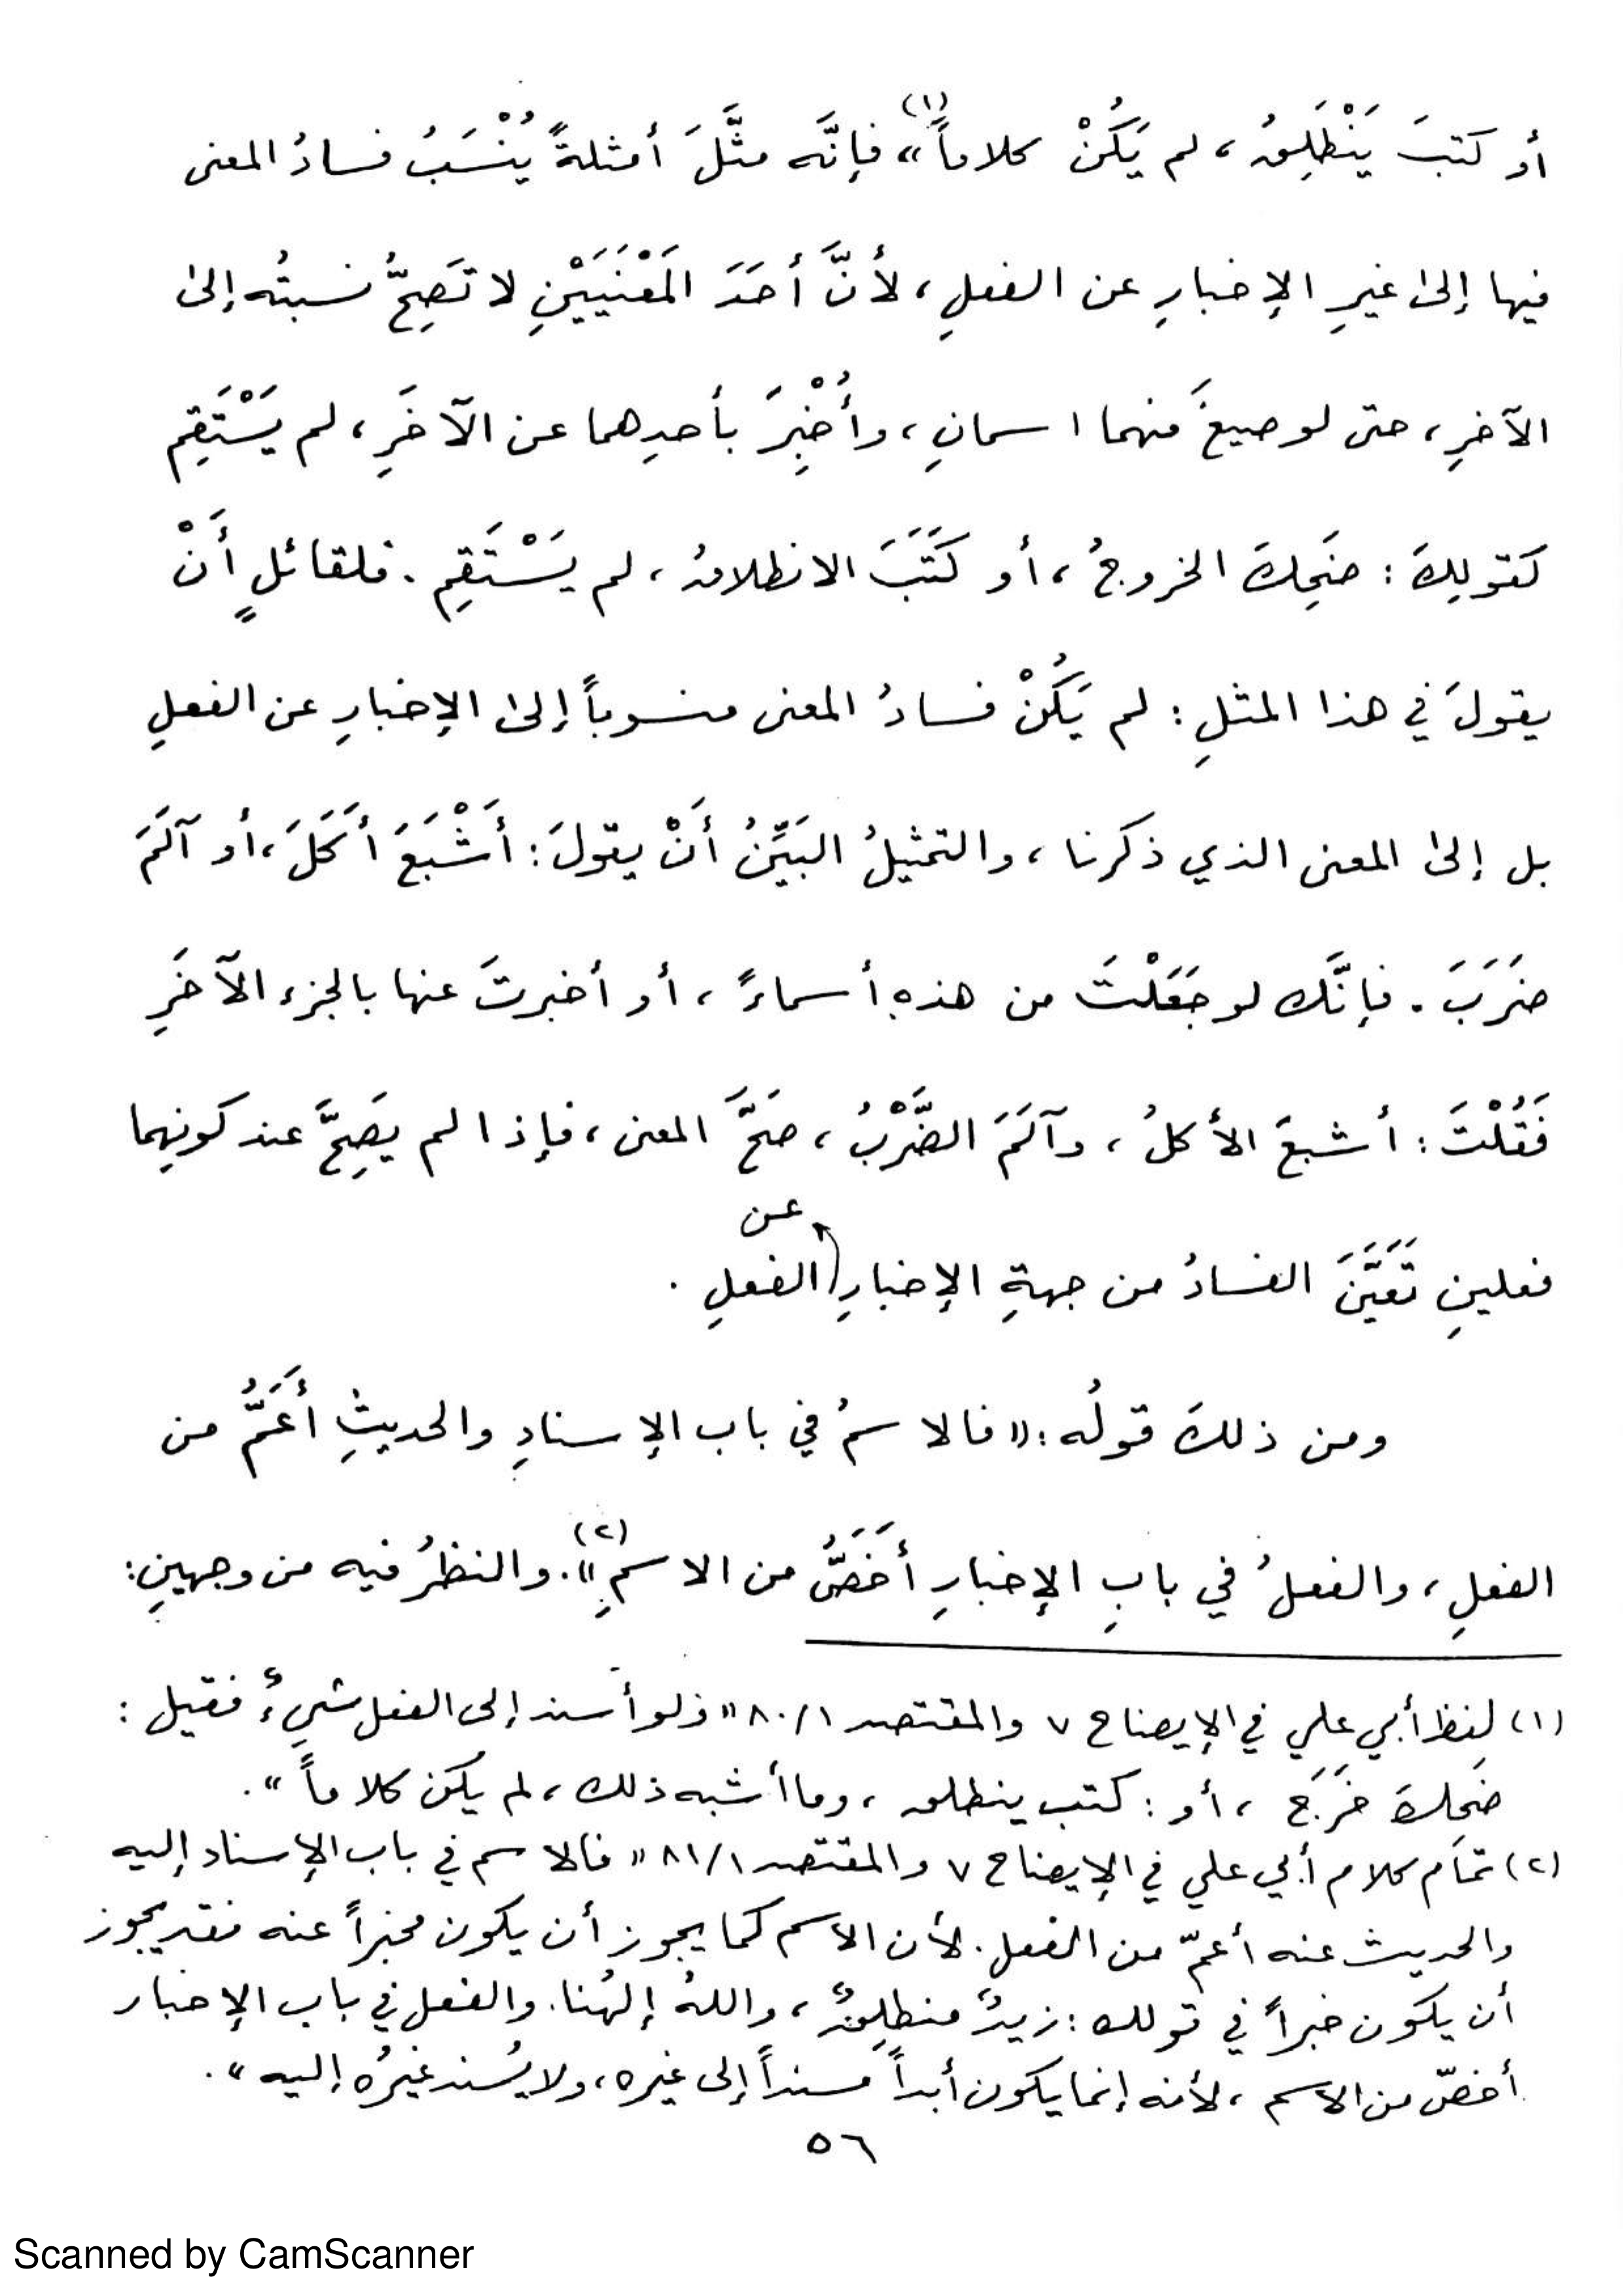 أو كتبَ يَنْطَلِقُ ، لم يَكُنْ كلاماً »(١) فإنَّه مثَّلَ أمثلةً يُنْسَبُ فسادُ المعنى
فيها إلىٰ غيرِ الإخبارِ عن الفعلِ ، لأنَّ أحَدَ المَعْنَيَيْنِ لا تَصِحُّ نسبتُه إلىٰ
الآخرِ ، حتى لو صيغَ منهما اسمانِ ، وأُخْبِرَ بأحدِهما عن الآخَرِ ، لم يَسْتَقِم
كقولِكَ : ضَحِكَ الخروجُ ، أو كَتَبَ الانطلاقُ ، لم يَسْتَقِم . فلقائلٍ أَنْ
يقولَ في هذا المثلِ : لم يَكُنْ فسادُ المعنى منسوباً إلىٰ الإخبارِ عن الفعلِ
بل إلىٰ المعنى الذي ذكرنا ، والتمثيلُ البَيِّنُ أَنْ يقولَ : أَشْبَعَ أَكَلَ ، أو آلَمَ
ضَرَبَ . فإنَّك لو جَعَلْتَ من هذهِ أسماءً ، أو أخبرتَ عنها بالجزء الآخَرِ
فَقُلْتَ : أشبعَ الأكلُ ، وآلَمَ الضَّرْبُ ، صَحَّ المعنى ، فإذا لم يَصِحَّ عند كونِهما
فعلينِ تَعَيَّنَ الفسادُ من جهةِ الإخبارِ عن الفعلِ .
ومن ذلكَ قولُه : « فالاسمُ في باب الإسنادِ والحديثِ أَعَمُّ من
الفعلِ ، والفعلُ في بابِ الإخبارِ أَخَصُّ من الاسمِ »(٢). والنظرُ فيه من وجهينِ :
(١) لفظ أبي علي في الإيضاح ٧ والمقتصد ٨٠/١ « فلو أسند إلى الفعل شيءٌ فقيل :
ضَحِكَ خَرَجَ ، أو : كتب ينطلق ، وما أشبه ذلك ، لم يكن كلاماً » .
(٢) تمام كلام أبي علي في الإيضاح ٧ والمقتصد ٨١/١ « فالاسم في باب الإسناد إليه
والحديث عنه أعمّ من الفعل . لأن الاسم كما يجوز أن يكون مخبراً عنه فقد يجوز
أن يكون خبراً في قولك : زيدٌ منطلِقٌ ، واللهُ إلهُنا . والفعل في باب الإخبار
أخصّ من الاسم ، لأنه إنما يكون أبداً مسنداً إلى غيره ، ولا يُسند غيرُه إليه » .
٥٦
Scanned by CamScanner